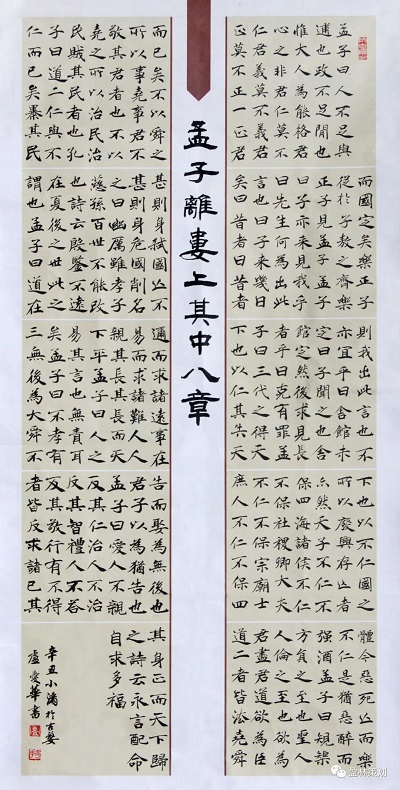 孟子離婁上其中八章
孟子曰人不足與
適也政不足閒也
惟大人為能格君
心之非君仁莫不
仁君義莫不義君
正莫不正一正君
而國定矣樂正子
從於子敖之齊樂
正子見孟子孟子
曰子亦來見我乎
曰先生何為出此
言也曰子來幾日
矣曰昔者曰昔者
則我出此言也不
亦宜乎曰舍館未
定曰子聞之也舍
館定然後求見長
者乎曰克有罪孟
子曰三代之得天
下也以仁其失天
下也以不仁國之
所以廢興存亡者
亦然天子不仁不
保四海諸侯不仁
不保社稷卿大夫
不仁不保宗廟士
庶人不仁不保四
體今惡死亡而樂
不仁是猶惡醉而
强酒孟子曰規榘
方員之至也聖人
人倫之至也欲為
君盡君道欲為臣
道二者皆法堯舜
而已矣不以舜之
所以事堯事君不
敬其君者也不以
堯之所以治民治
民賊其民者也孔
子曰道二仁與不
仁而已矣暴其民
甚則身弒國亡不
甚則身危國削名
之曰幽厲雖孝子
慈孫百世不能改
也詩云殷鑒不遠
在夏後之世此之
謂也孟子曰道在
邇而求諸遠事在
易而求諸難人人
親其長其長而天
下平孟子曰人之
易其言也無責耳
矣孟子曰不孝有
三無後為大舜不
告而娶為無後也
君子以為猶告也
孟子曰愛人不親
反其仁治人不治
反其智禮人不答
反其敬行有不得
者皆反求諸已其
其身正而天下歸
之詩云永言配命
自求多福
辛丑小滿於古婺
盧愛華書
盛林策划